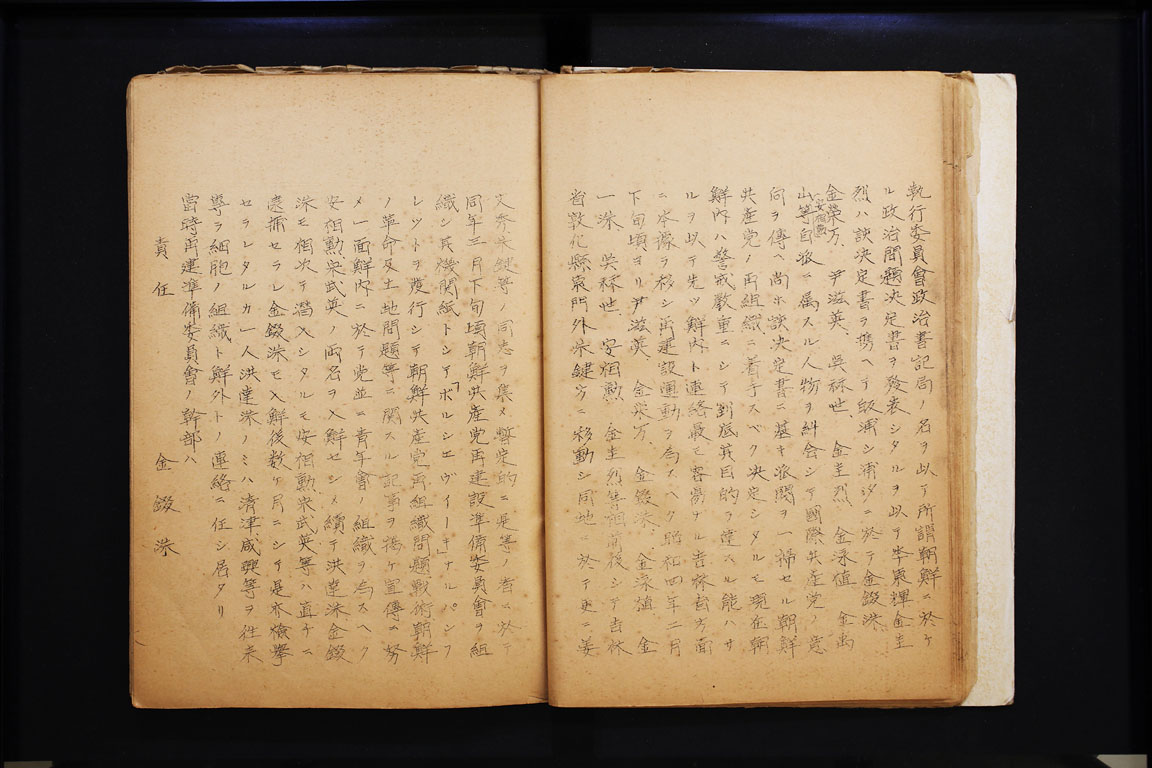 執行委員會政治書記局ノ名ヲ以テ所謂朝鮮ニ於ケ
ル政治問題決定書ヲ發表シタルヲ以テ李東輝金圭
烈ハ該決定書ヲ携ヘテ ニ於テ金錣洙
金榮万、尹滋英、呉秌世、金圭烈 金泳植 金
山等自派ニ属スル人物ヲ糾合シテ國際共産党ノ意
安相勲
向ヲ傳ヘ尚ホ該決定書ニ基キ派閥ヲ一掃セル朝鮮
共産党ノ再組織ニ着手スベク決定シタルモ現在朝
鮮内ハ警戒嚴重ニシテ到底其目的ヲ達スル能ハサ
ルヲ以テ先ツ鮮内ト連絡最モ容易ナル吉林省方面
ニ本據ヲ移シ再建設運動ヲ為スヘク昭和四年二月
下旬頃ヨリ尹滋英、金榮万、金錣洙、金泳植 金
一洙、呉秌世、安相勲、金圭烈等相前後シテ吉林
省敦化縣東門外朱鍵方ニ移動シ同地ニ於テ更ニ姜
文秀朱鍵等ノ同志ヲ集メ暫定的ニ是等ノ者ニ於テ
同年三月下旬頃朝鮮共産党再建設準備委員會ヲ組
織シ其機関紙トシテ「ボルシエヴイーキ」ナルパンフ
レツトヲ發行シテ朝鮮共産党再組織問題戰術朝鮮
ノ革命及土地問題等ニ関スル記事ヲ掲ケ宣傳ニ努
メ一面鮮内ニ於テ党並ニ青年會ノ組織ヲ為スヘク
安相勲宋武英ノ両名ヲ入鮮セシメ續テ洪達洙金錣
洙モ相次テ潜入シタルモ安相勲宋武英等ハ直チニ
逮捕セラレ金錣洙モ入鮮後数ヶ月ニシテ是亦檢擧
セラレタルカ一人洪達洙ノミハ清津、咸興等ヲ往来
專ラ細胞ノ組織ト鮮外トノ連絡ニ任シ居タリ
當時再建準備委員會ノ幹部ハ
責任 金錣洙